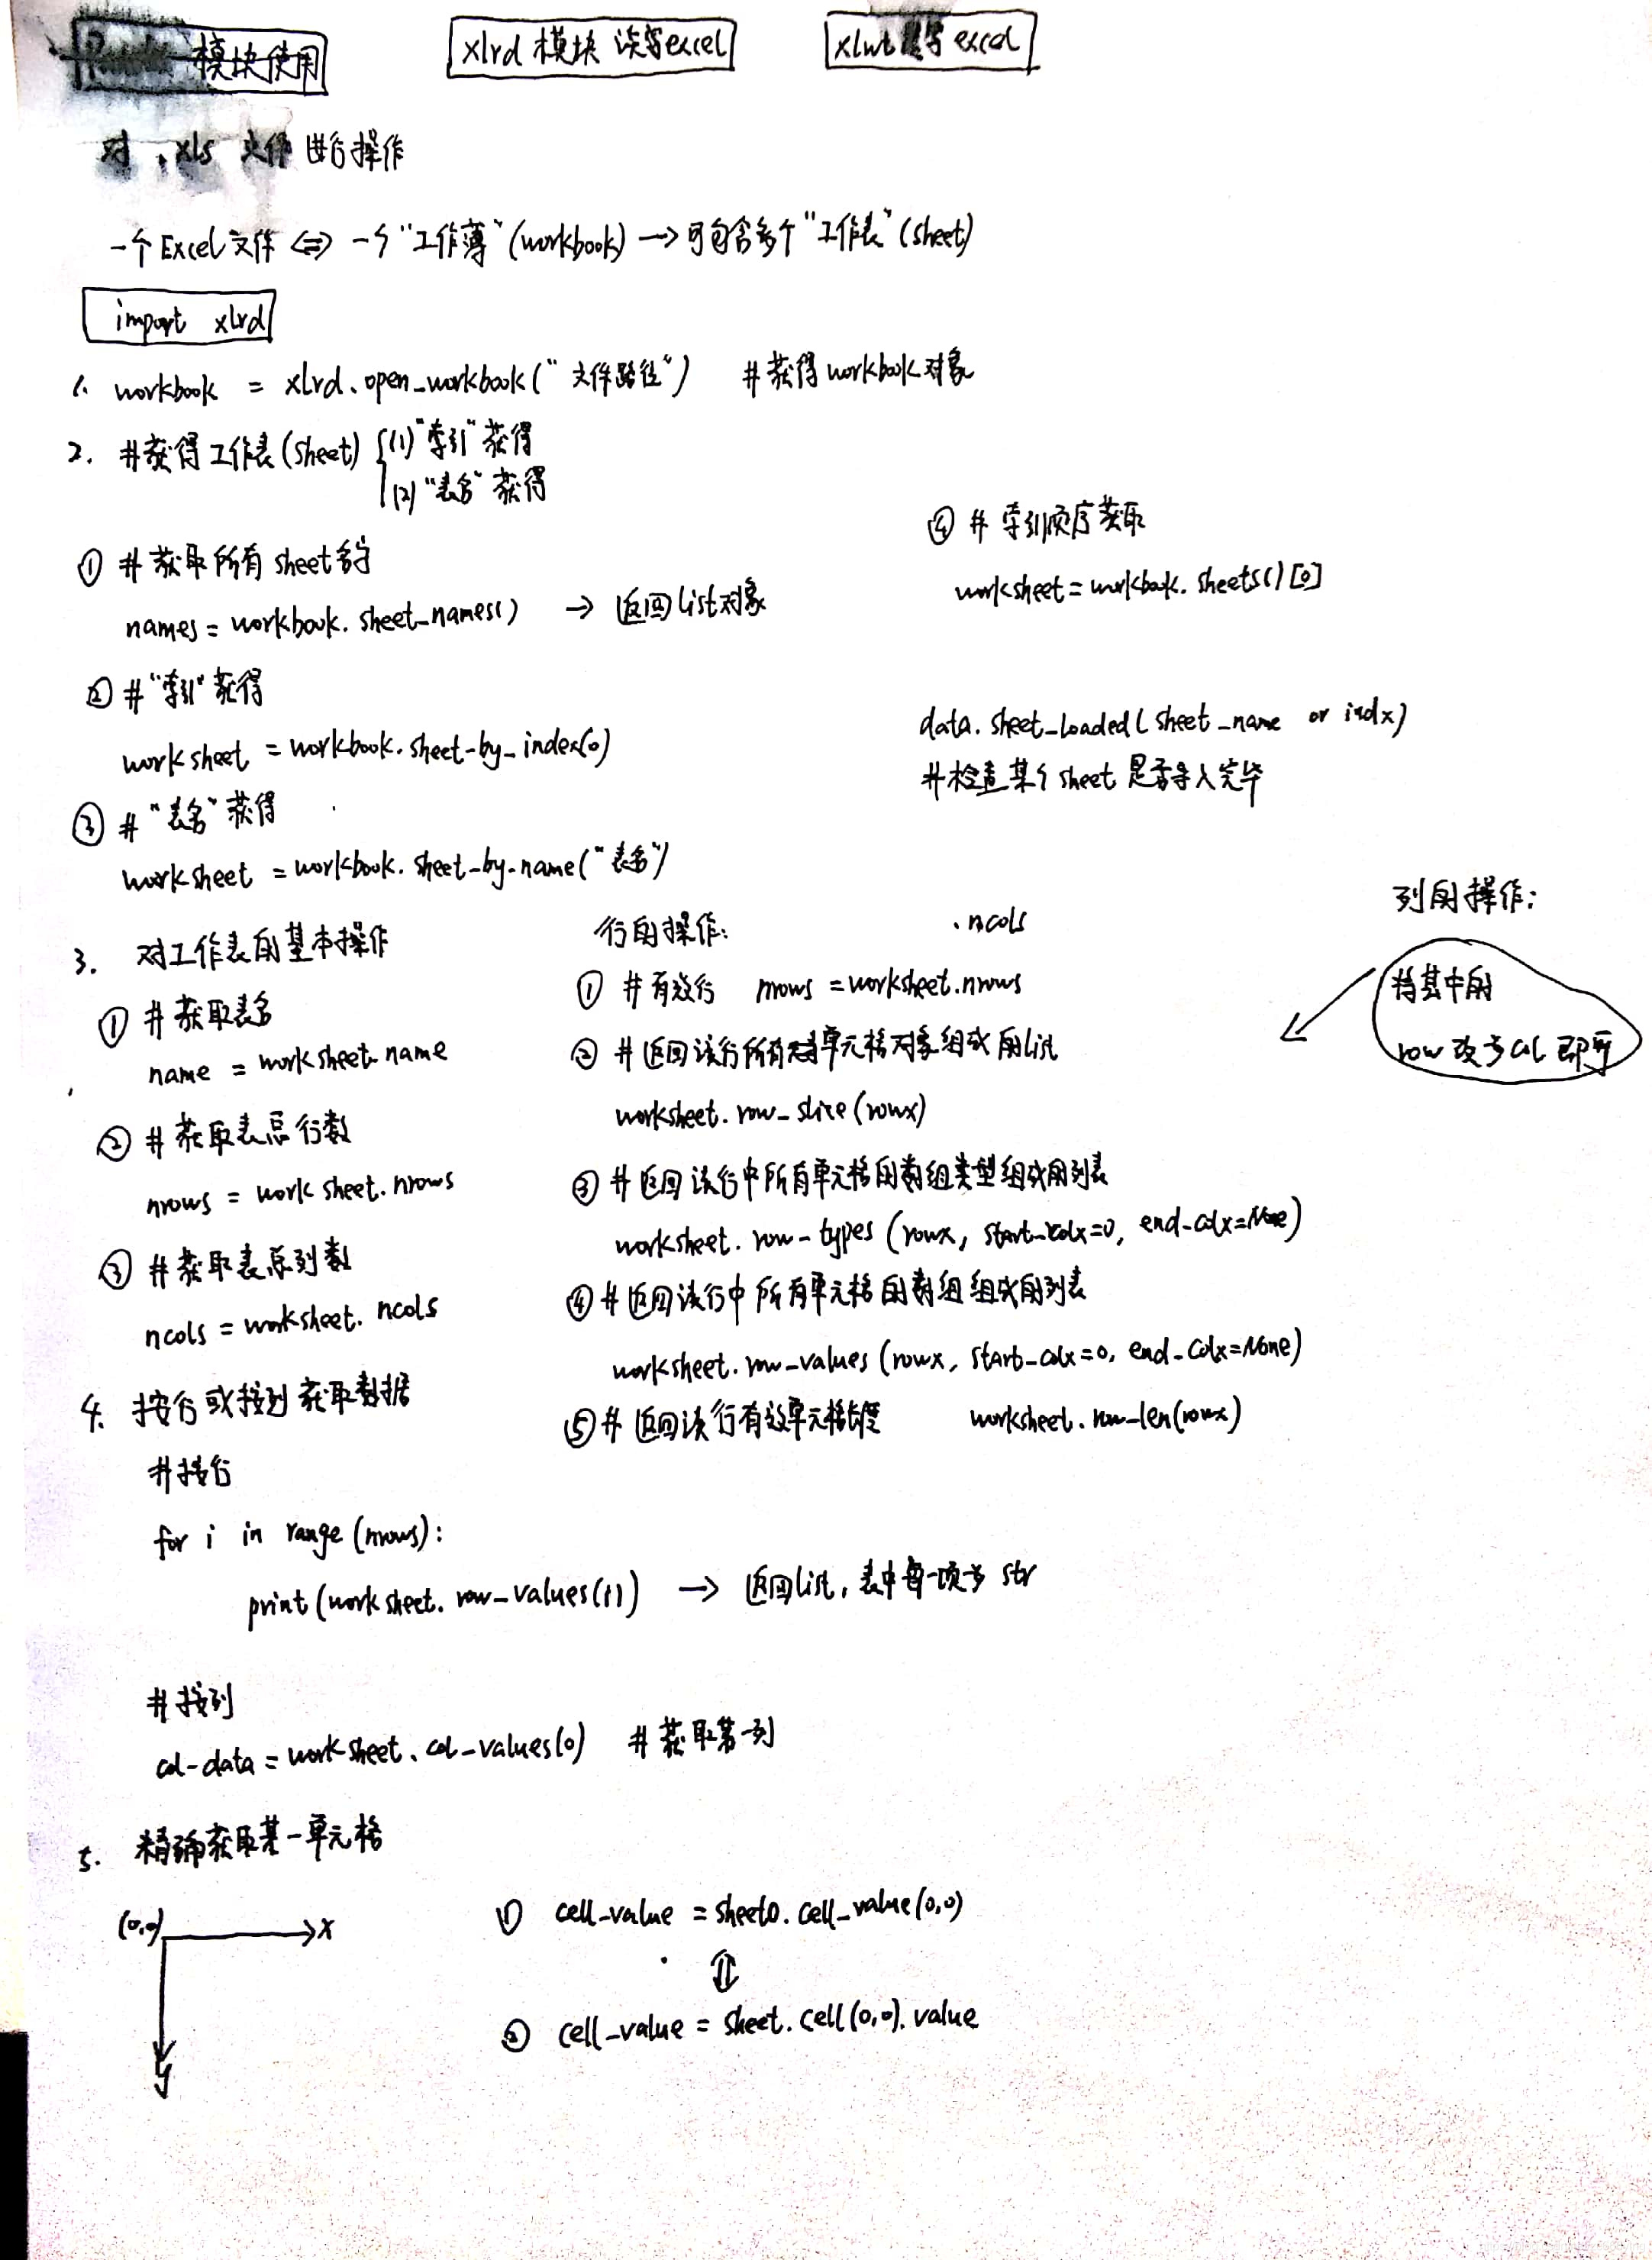 模块使用
xlrd 模块 读写excel
xlwt 写 excel
对 .xls 文件 进行操作
一个 Excel 文件 <=> 一个 "工作薄" (workbook) → 可包含多个 "工作表" (sheet)
import xlrd
1. workbook = xlrd.open_workbook("文件路径") #获得 workbook 对象
2. #获得工作表(sheet) { (1) "索引" 获得
(2) "表名" 获得
① #获取所有 sheet 名字
names = workbook.sheet_names() → 返回list对象
② # "索引" 获得
worksheet = workbook.sheet_by_index(0)
③ # "表名" 获得
worksheet = workbook.sheet_by_name("表名")
④ # 索引顺序获取
worksheet = workbook.sheets()[0]
data.sheet_loaded(sheet_name or indx)
#检查某个 sheet 是否导入完毕
3. 对工作表的基本操作
① #获取表名
name = worksheet.name
② #获取表总行数
nrows = worksheet.nrows
③ #获取表总列数
ncols = worksheet.ncols
行的操作: .ncols
① #有效行 nrows = worksheet.nrows
② #返回该行所有单元格对象组成的list
worksheet.row_slice(rowx)
③ #返回该行中所有单元格的数组类型组成的列表
worksheet.row_types(rowx, start_colx=0, end_colx=None)
④ #返回该行中所有单元格的数组组成的列表
worksheet.row_values(rowx, start_colx=0, end_colx=None)
⑤ #返回该行有效单元格长度 worksheet.row_len(rowx)
列的操作:
将其中的
row 改为 col 即可
4. 按行或按列获取数据
#按行
for i in range(nrows):
print(worksheet.row_values(i)) → 返回list,表中每一项为 str
#按列
col_data = worksheet.col_values(0) #获取第一列
5. 精确获取某一单元格
(0,0) x
y
① cell_value = sheet0.cell_value(0,0)
② cell_value = sheet.cell(0,0).value